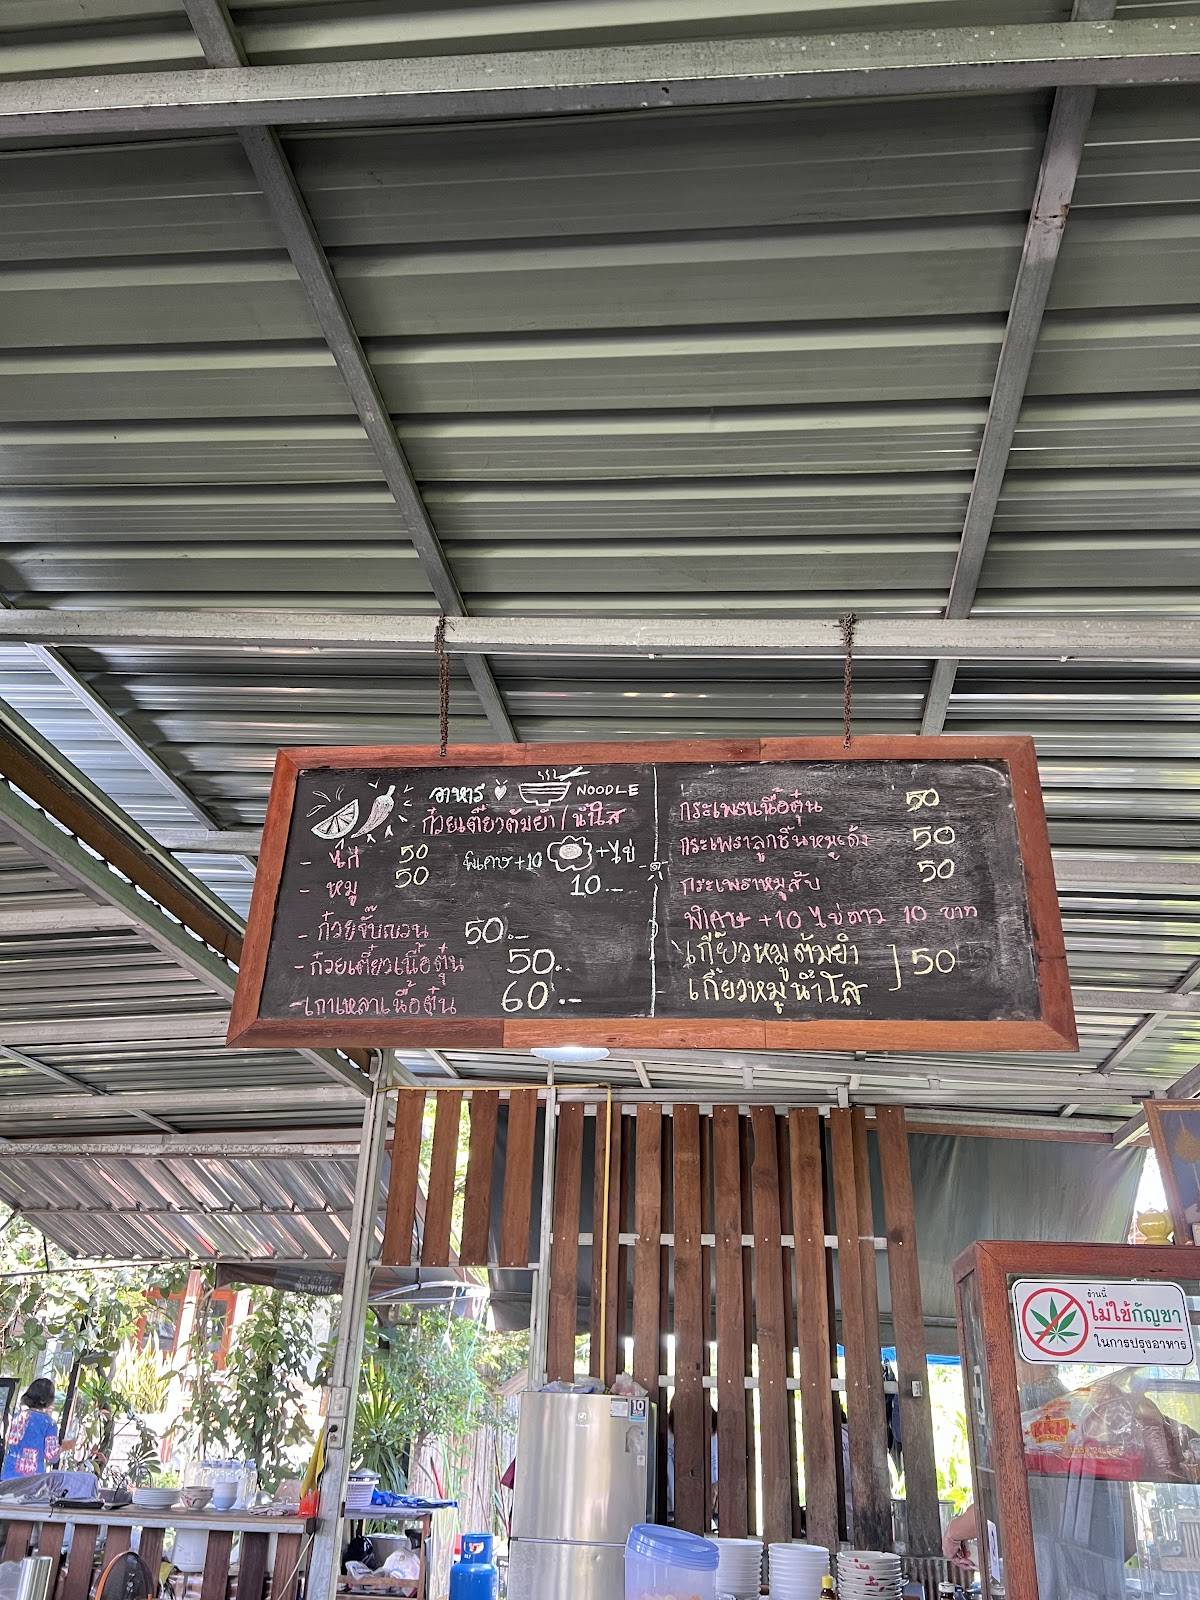 อาหาร NOODLE
ก๋วยเตี๋ยวต้มยำ/น้ำใส
- ไก่ 50
- หมู 50
พิเศษ +10 +ไข่
10.-
- ก๋วยจั๊บญวน 50.-
- ก๋วยเตี๋ยวเนื้อตุ๋น 50.-
- เกาเหลาเนื้อตุ๋น 60.-
กระเพราเนื้อตุ๋น 50
กระเพราลูกชิ้นหมูเด้ง 50
กระเพราหมูสับ 50
พิเศษ +10 ไข่ดาว 10 บาท
เกี๊ยวหมูต้มยำ ] 50
เกี้ยวหมูน้ำใส
ร้านนี้
ไม่ใช้กัญชา
ในการปรุงอาหาร
10